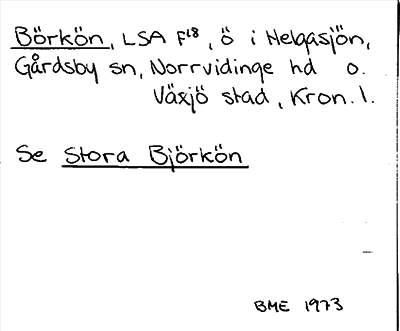 Börkön, LSA F18, ö i Helgasjön,
Gårdsby sn, Norrvidinge hd o.
Växjö stad, Kron. l.
Se Stora Björkön
BME 1973